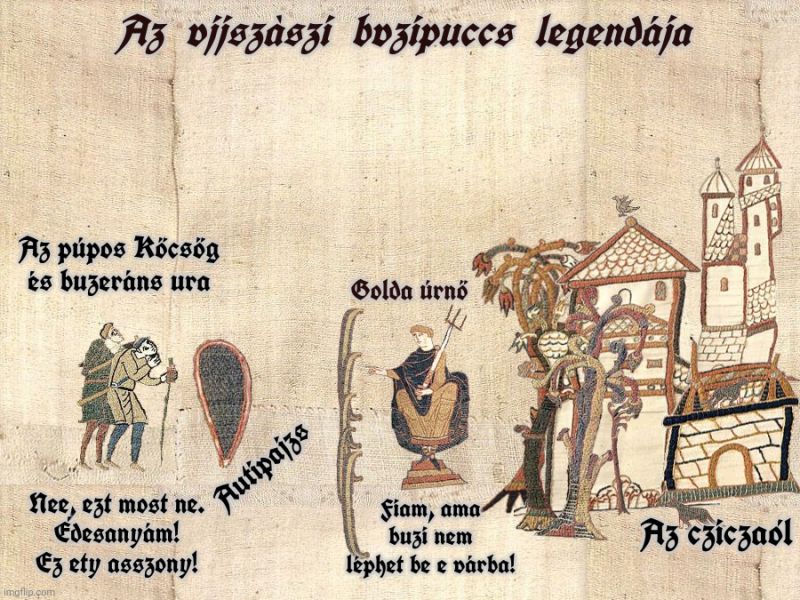 Az vjjszàszí bvzípuccs legendája
Az púpos Kőcsőg
és buzeráns ura
Golda úrnő
Autípajzs
Nee, ezt most ne.
Édesanyám!
Ez ety asszony!
Fiam, ama
buzi nem
léphet be e várba!
Az cziczaól
imgflip.com